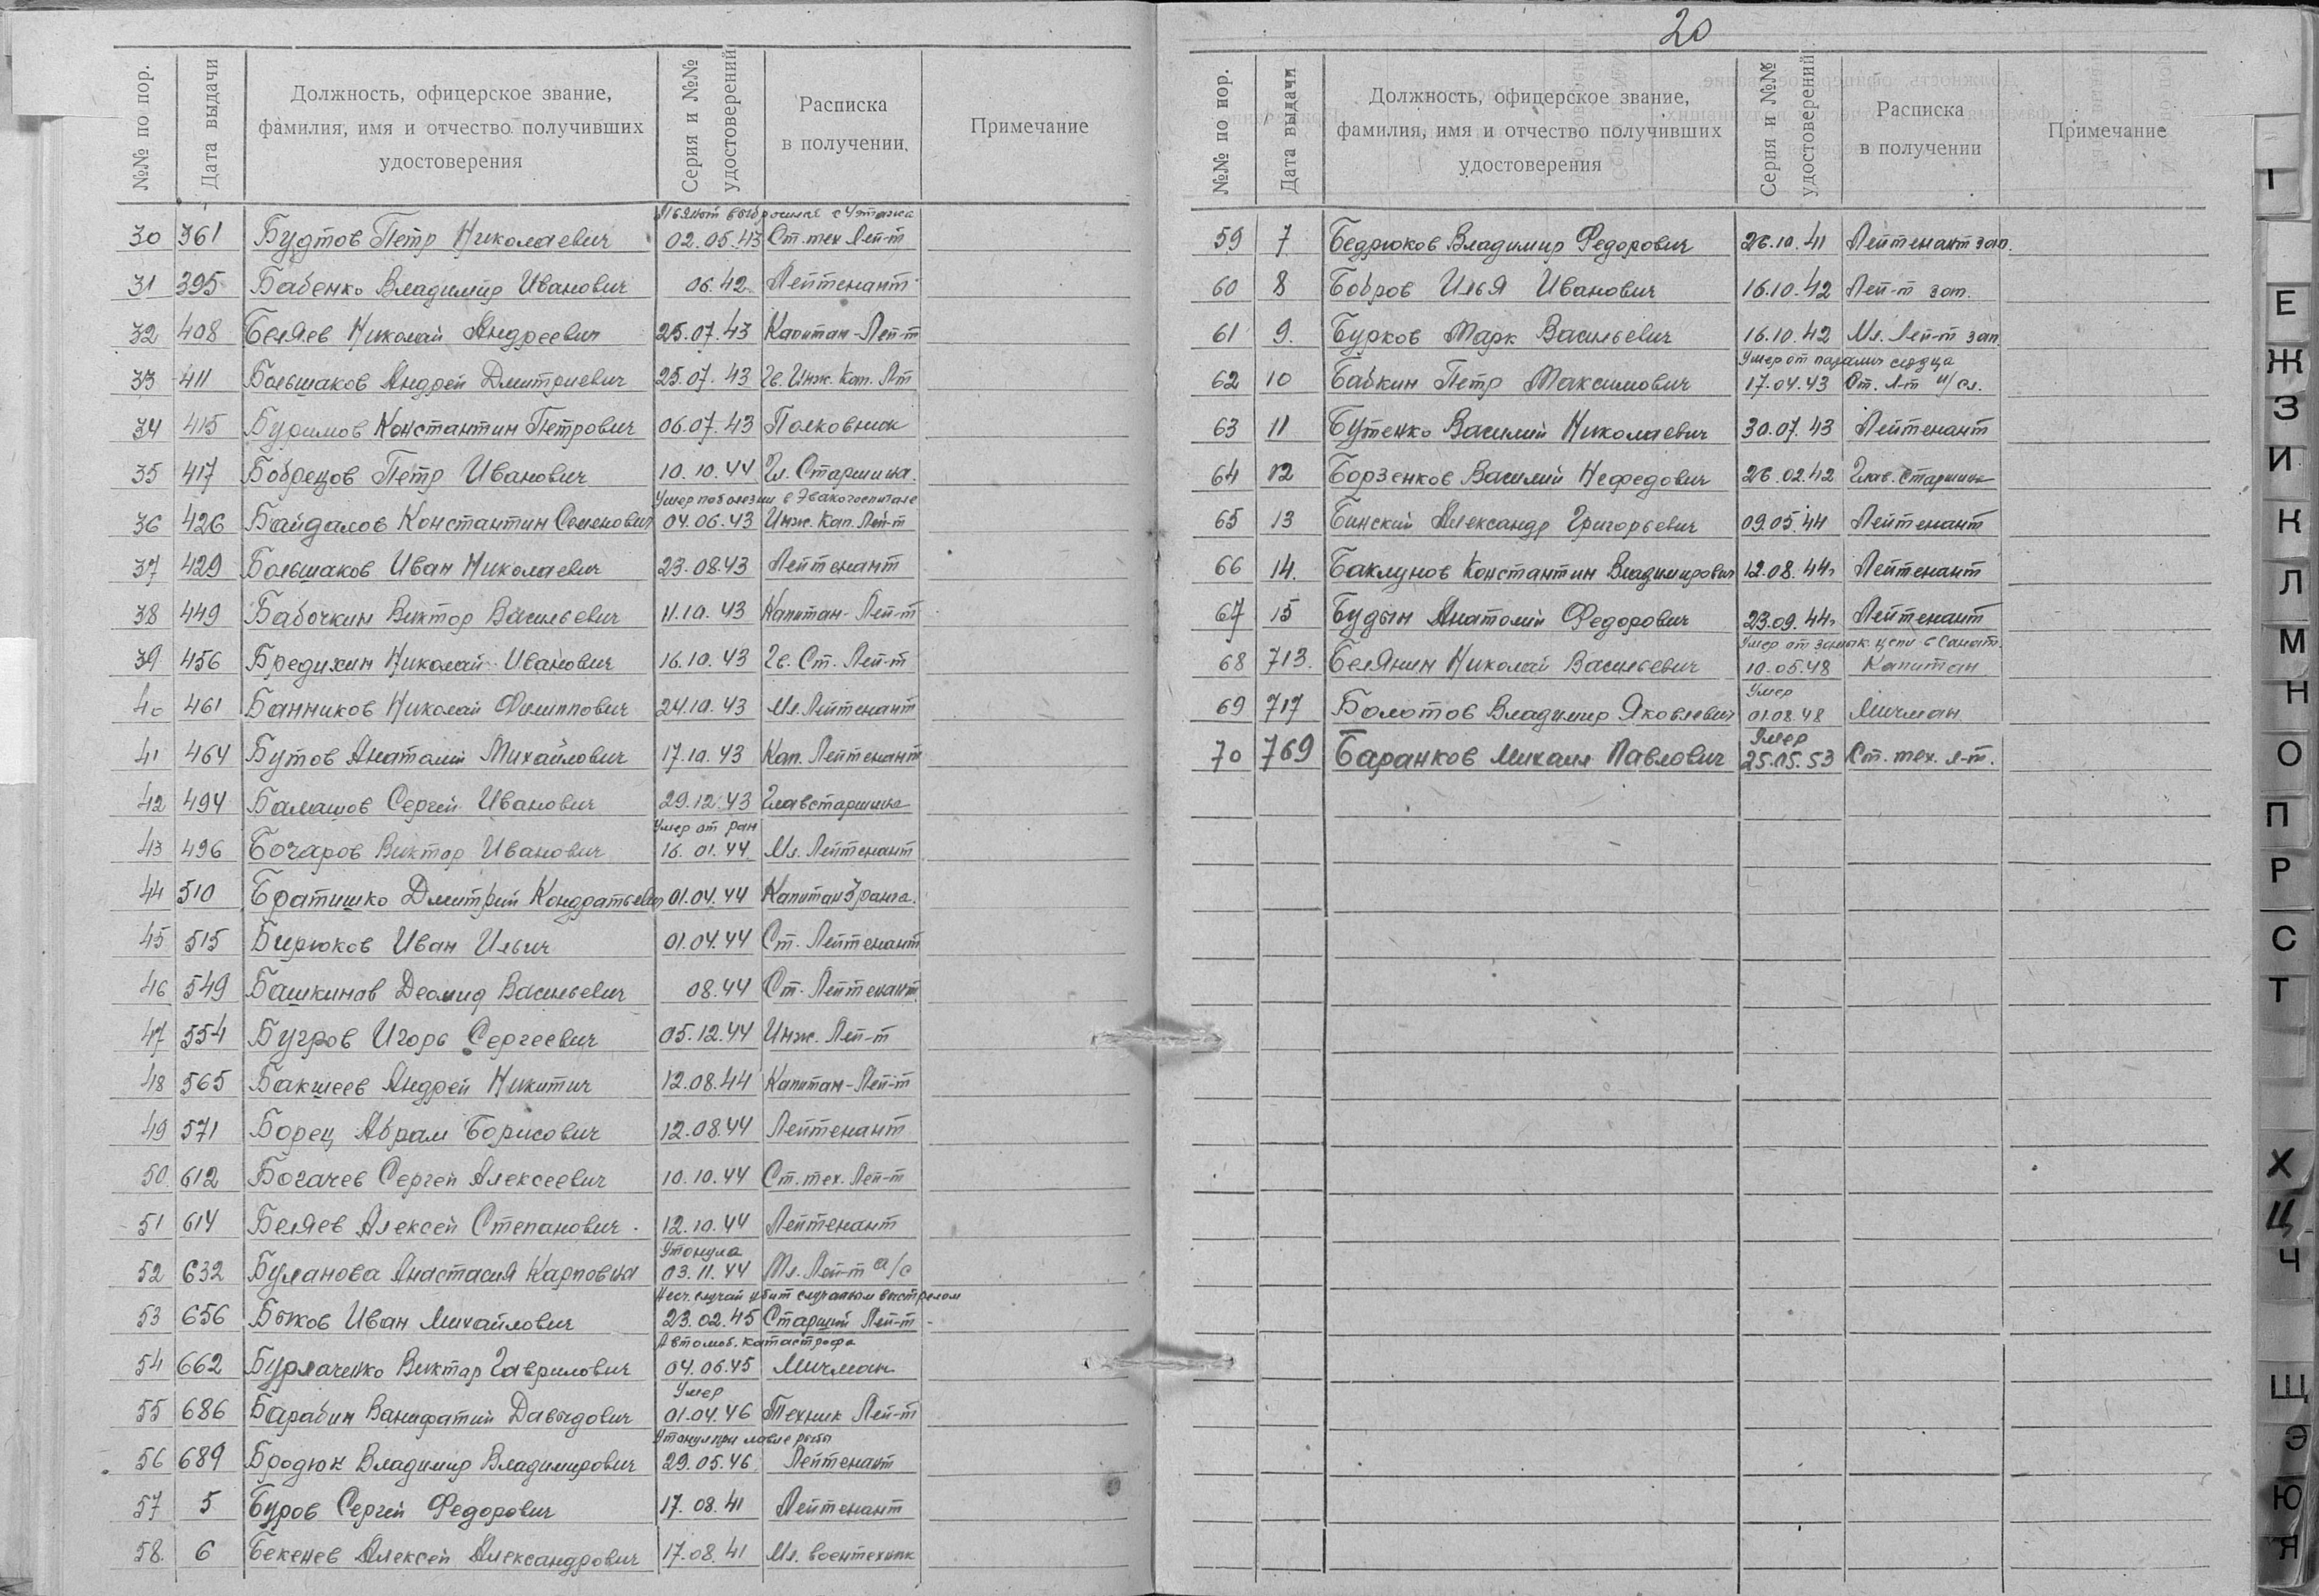 №№ по пор. Дата выдачи Должность, офицерское звание, фамилия, имя и отчество получивших удостоверения Серия и №№ удостоверений Расписка в получении. Примечание
выбросился с 4 этажа
30 361 Будтов Петр Николаевич 02.05.43 Ст. тех. Лей-т
31 395 Бабенко Владимир Иванович 06.42 Лейтенант
32 408 Беляев Николай Андреевич 25.07.43 Капитан-Лей-т
33 411 Большаков Андрей Дмитриевич 25.07.43 Гв. Инж. Кап. Л-т
34 415 Буримов Константин Петрович 06.07.43 Полковник
35 417 Бобрецов Петр Иванович 10.10.44 Гл. Старшина.
Умер по болезни в Эвакогоспитале
36 426 Байдалов Константин Семенович 04.06.43 Инж. Кап. Лей-т
37 429 Большаков Иван Николаевич 23.08.43 Лейтенант
38 449 Бабочкин Виктор Васильевич 11.10.43 Капитан-Лей-т
39 456 Бредихин Николай Иванович 16.10.43 Гв. Ст. Лей-т
40 461 Банников Николай Филиппович 24.10.43 Мл. Лейтенант
41 464 Бутов Анатолий Михайлович 17.10.43 Кап. Лейтенант
42 494 Балашов Сергей Иванович 29.12.43 Главстаршина
Умер от ран
43 496 Бочаров Виктор Иванович 16.01.44 Мл. Лейтенант
44 510 Братишко Дмитрий Кондратьевич 01.04.44 Капитан 3 ранга.
45 515 Бирюков Иван Ильич 01.04.44 Ст. Лейтенант
46 549 Башкинов Деомид Васильевич 08.44 Ст. Лейтенант
47 554 Бугров Игорь Сергеевич 05.12.44 Инж. Лей-т
48 565 Бакшеев Андрей Никитич 12.08.44 Капитан-Лей-т
49 571 Борец Абрам Борисович 12.08.44 Лейтенант
50. 612 Богачев Сергей Алексеевич 10.10.44 Ст. тех. Лей-т
51 614 Беляев Алексей Степанович. 12.10.44 Лейтенант
Утонула
52 632 Буланова Анастасия Карповна 03.11.44 Мл. Лей-т а/с
Несч. случай убит случайным выстрелом
53 656 Быков Иван Михайлович 23.02.45 Старший Лей-т
Автомоб. катастрофа
54 662 Бурлаченко Виктор Гаврилович 04.06.45 Мичман
Умер
55 686 Барабин Ванифатий Давыдович 01.04.46 Техник Лей-т
Утонул при ловле рыбы
56 689 Бродюк Владимир Владимирович 29.05.46. Лейтенант
57 5 Буров Сергей Федорович 17.08.41 Лейтенант
58. 6 Бекенев Алексей Александрович 17.08.41 Мл. воентехник
20
№№ по пор. Дата выдачи Должность, офицерское звание, фамилия, имя и отчество получивших удостоверения Серия и №№ удостоверений Расписка в получении Примечание
59 7 Бедрюков Владимир Федорович 26.10.41 Лейтенант зап.
60 8 Бобров Илья Иванович 16.10.42 Лей-т зап.
61 9. Бурков Марк Васильевич 16.10.42 Мл. Лей-т зап.
Умер от паралич сердца
62 10 Бабкин Петр Максимович 17.04.43 Ст. Л-т и/сл.
63 11 Бутенко Василий Николаевич 30.07.43 Лейтенант
64 12 Борзенков Василий Нефедович 26.02.42 Глав. старшина
65 13 Бинский Александр Григорьевич 09.05.44 Лейтенант
66 14. Баклунов Константин Владимирович 12.08.44г Лейтенант
67 15 Будын Анатолий Федорович 23.09.44г Лейтенант
Умер от в Санат.
68 713. Белянин Николай Васильевич 10.05.48 Капитан
Умер
69 717 Болотов Владимир Яковлевич 01.08.48 Мичман
Умер
70 769 Баранков Михаил Павлович 25.05.53 Ст. тех. л-т.
Е
Ж
З
И
К
Л
М
Н
О
П
Р
С
Т
Х
Ц
Ч
Щ
Э
Ю
Я